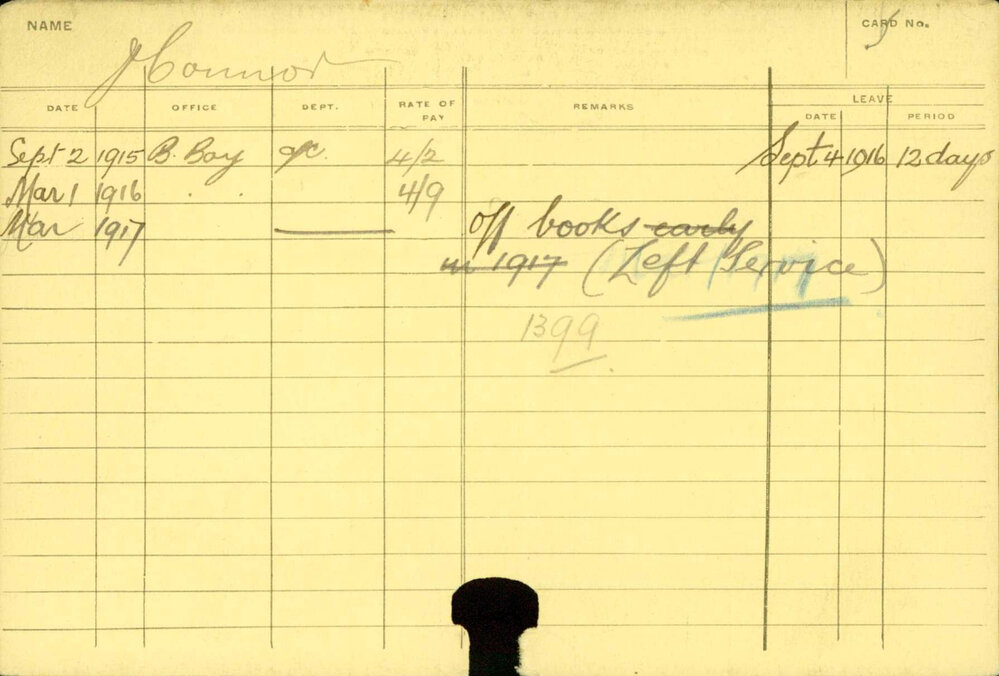 NAME J Connor CARD No.
DATE OFFICE DEPT. RATE OF PAY REMARKS LEAVE
DATE PERIOD
Sept 2 1915 B. Boy 4/2 Sept 4 1916 12 days
Mar 1 1916 . . 4/9
Mar 1917 off books early
in 1917 (Left Service)
1399